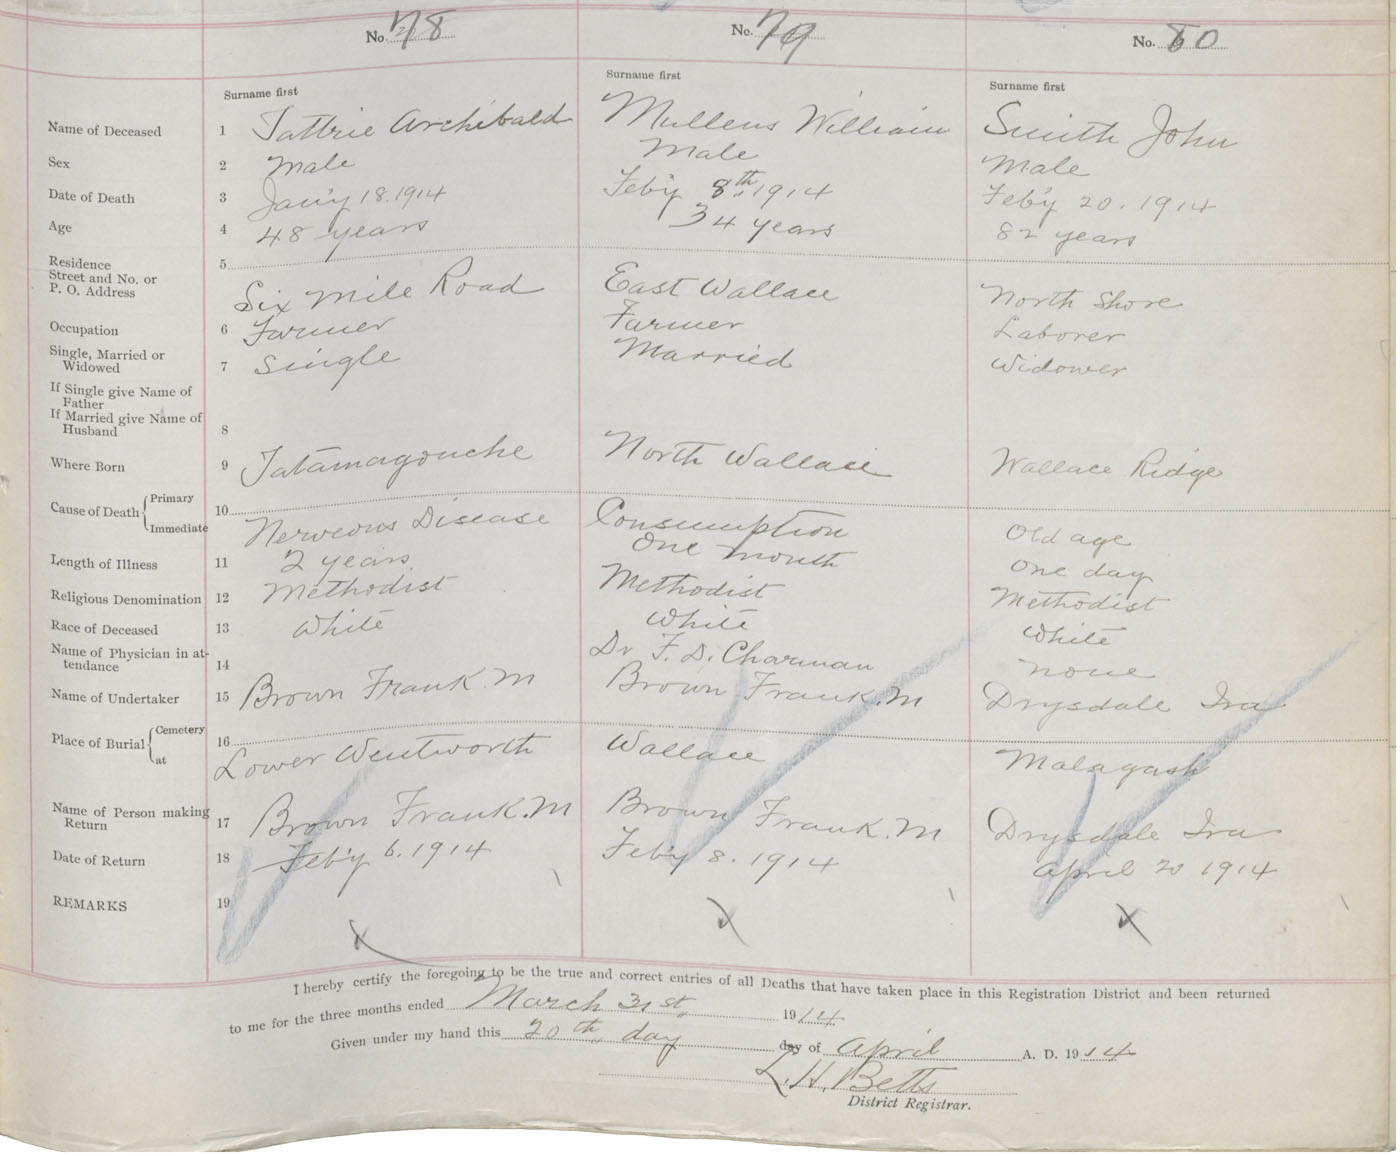 No. 78 No. 79 No. 80
Surname first Surname first Surname first
Name of Deceased 1 Tattrie Archibald Mullens William Smith John
Sex 2 Male Male Male
Date of Death 3 Jan'y 18. 1914 Feb'y 8th, 1914 Feb'y 20. 1914
Age 4 48 years 34 years 82 years
Residence
Street and No. or
P. O. Address 5 Six Mile Road East Wallace North Shore
Occupation 6 Farmer Farmer Laborer
Single, Married or
Widowed 7 Single Married Widower
If Single give Name of
Father
If Married give Name of
Husband 8
Where Born 9 Tatamagouche North Wallace Wallace Ridge
Cause of Death { Primary
Immediate 10 Nerveous Disease Consumption Old age
Length of Illness 11 2 years One month One day
Religious Denomination 12 Methodist Methodist Methodist
Race of Deceased 13 White White White
Name of Physician in at-
tendance 14 Dr F. D. Charman None
Name of Undertaker 15 Brown Frank. M Brown Frank. M Drysdale Ira
Place of Burial { Cemetery
at 16 Lower Wentworth Wallace Malagash
Name of Person making
Return 17 Brown Frank. M Brown Frank. M Drysdale Ira
Date of Return 18 Feb'y 6. 1914 Feb'y 8. 1914 April 20 1914
REMARKS 19 x x x
I hereby certify the foregoing to be the true and correct entries of all Deaths that have taken place in this Registration District and been returned
to me for the three months ended March 31st, 1914
Given under my hand this 20th, day day of April A. D. 1914
L. H. Betts
District Registrar.